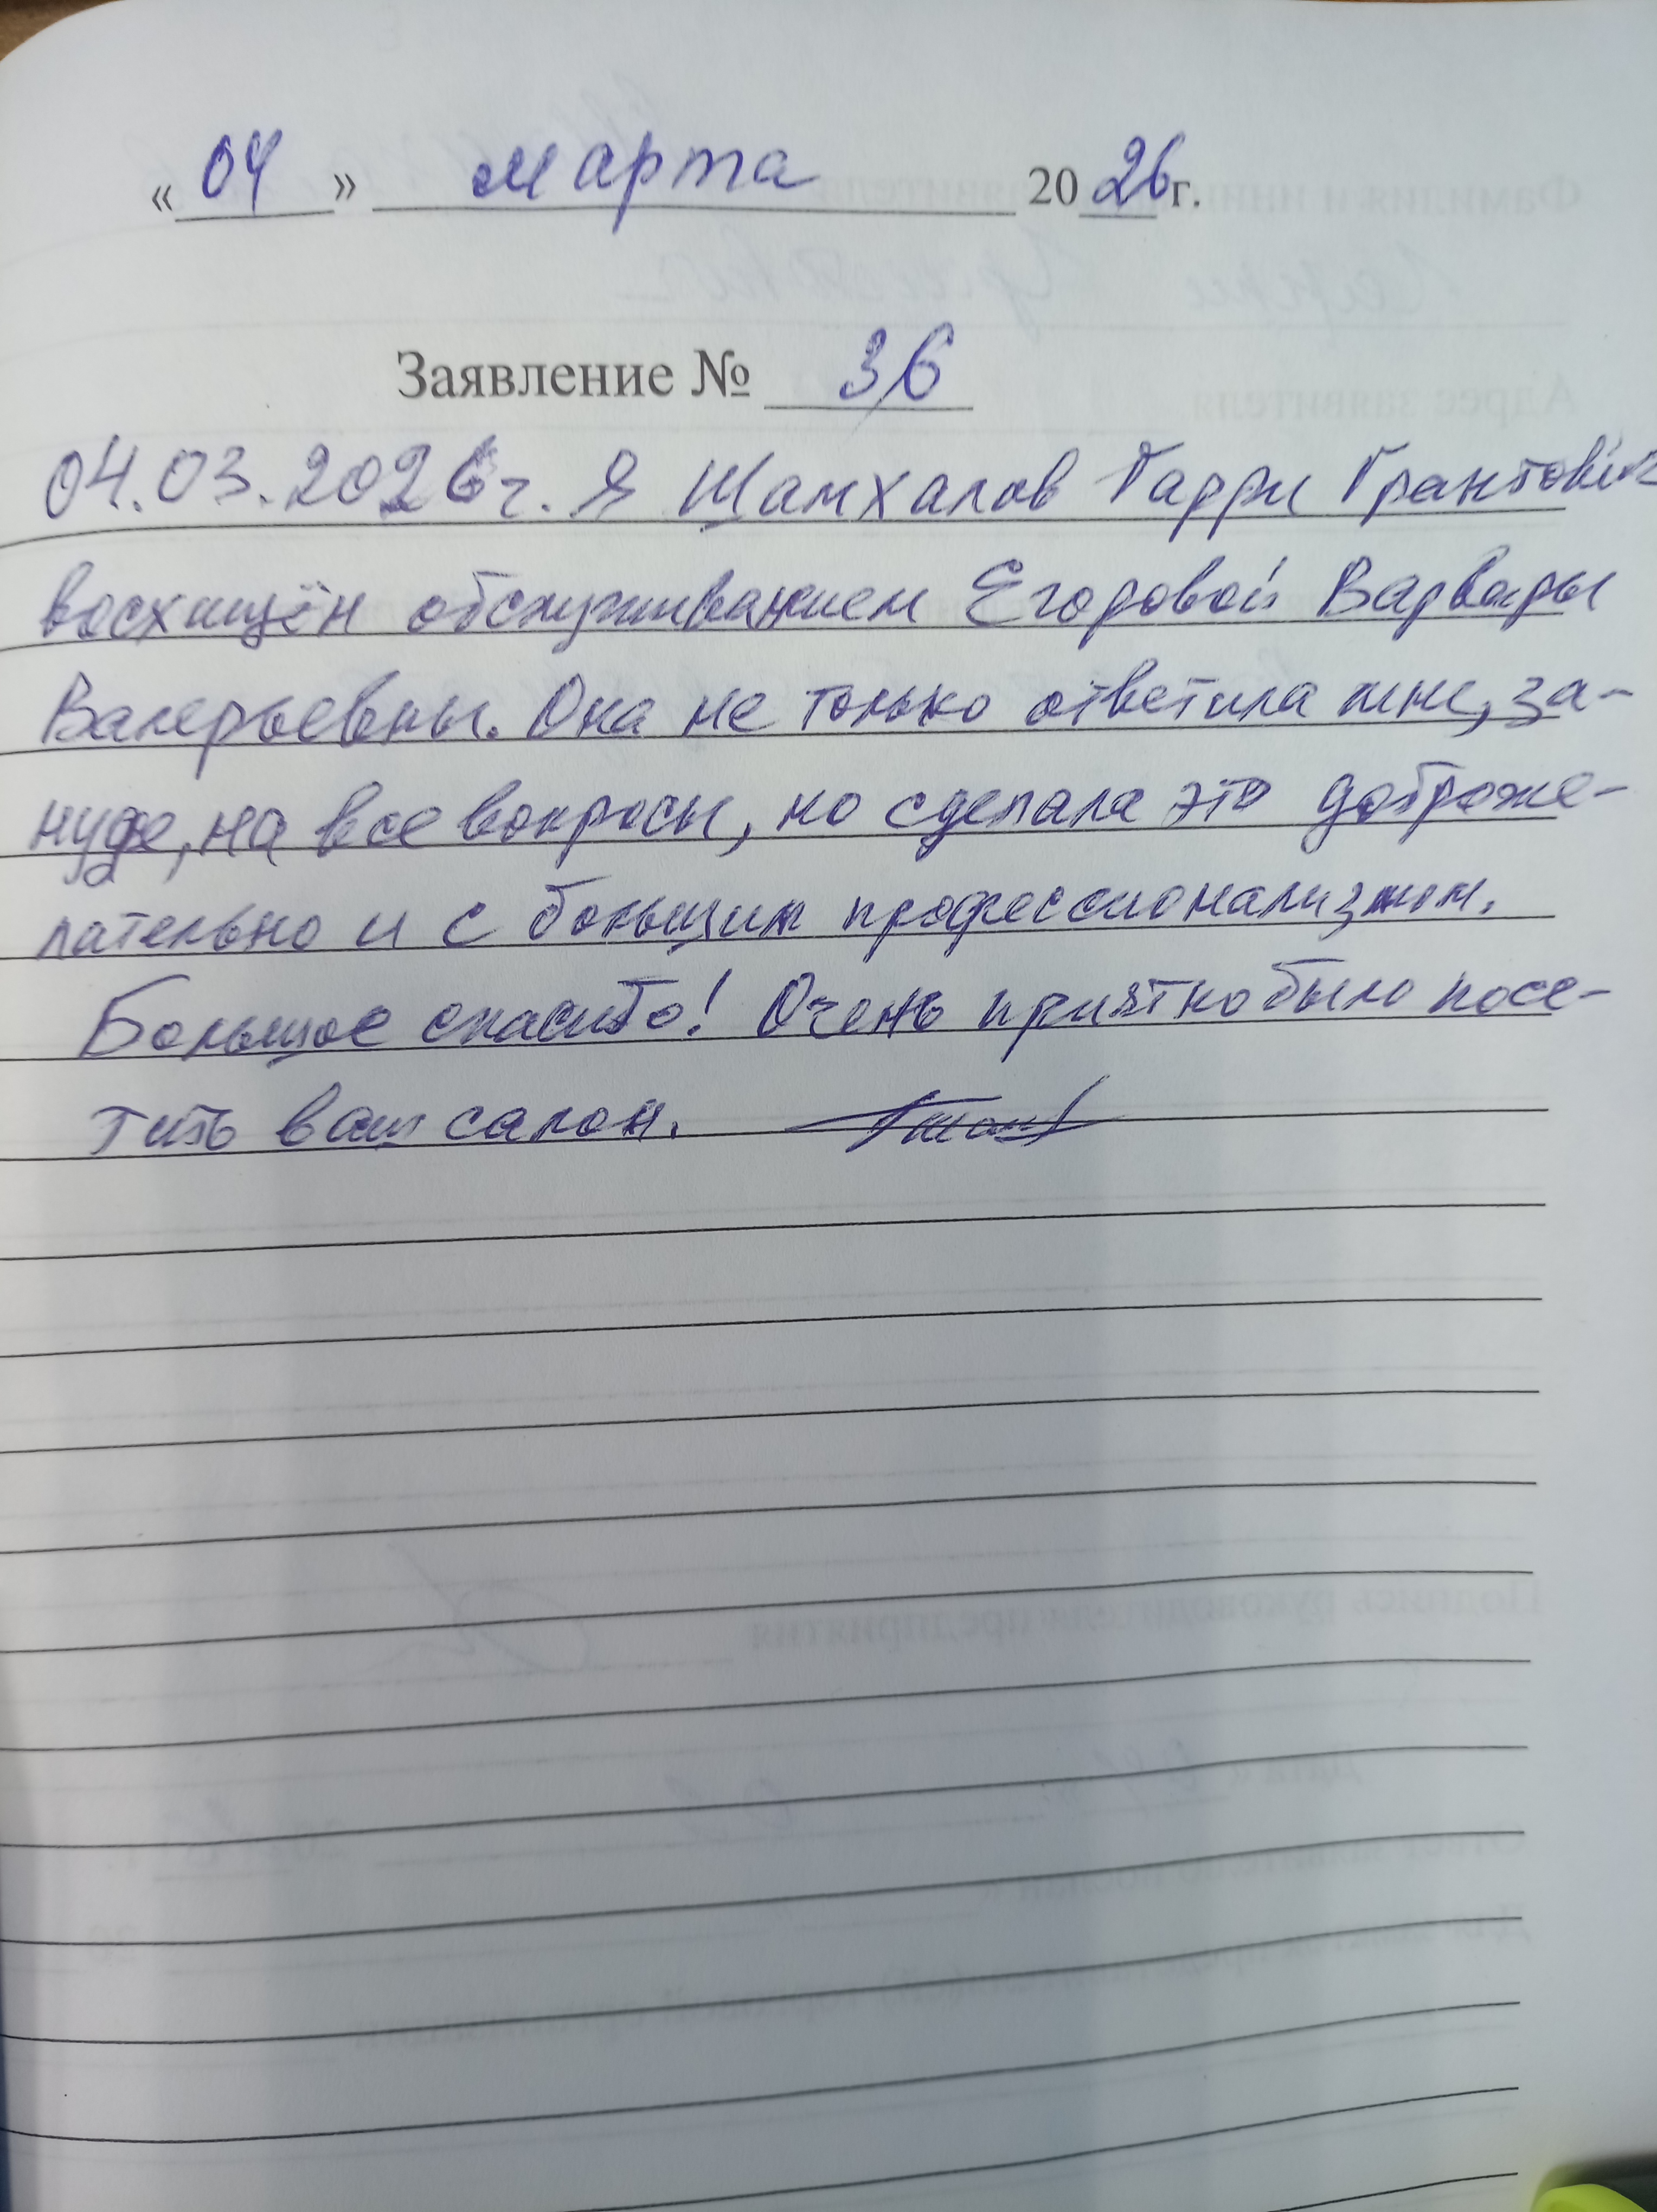 « 04 » марта 2026г.
Заявление № 36
04.03.2026г. Я Шамхалов Гарри Грантович
восхищён обслуживанием Егоровой Варвары
Валерьевны. Она не только ответила мне, за-
нуде, на все вопросы, но сделала это доброже-
лательно и с большим профессионализмом.
Большое спасибо! Очень приятно было посе-
тить ваш салон.